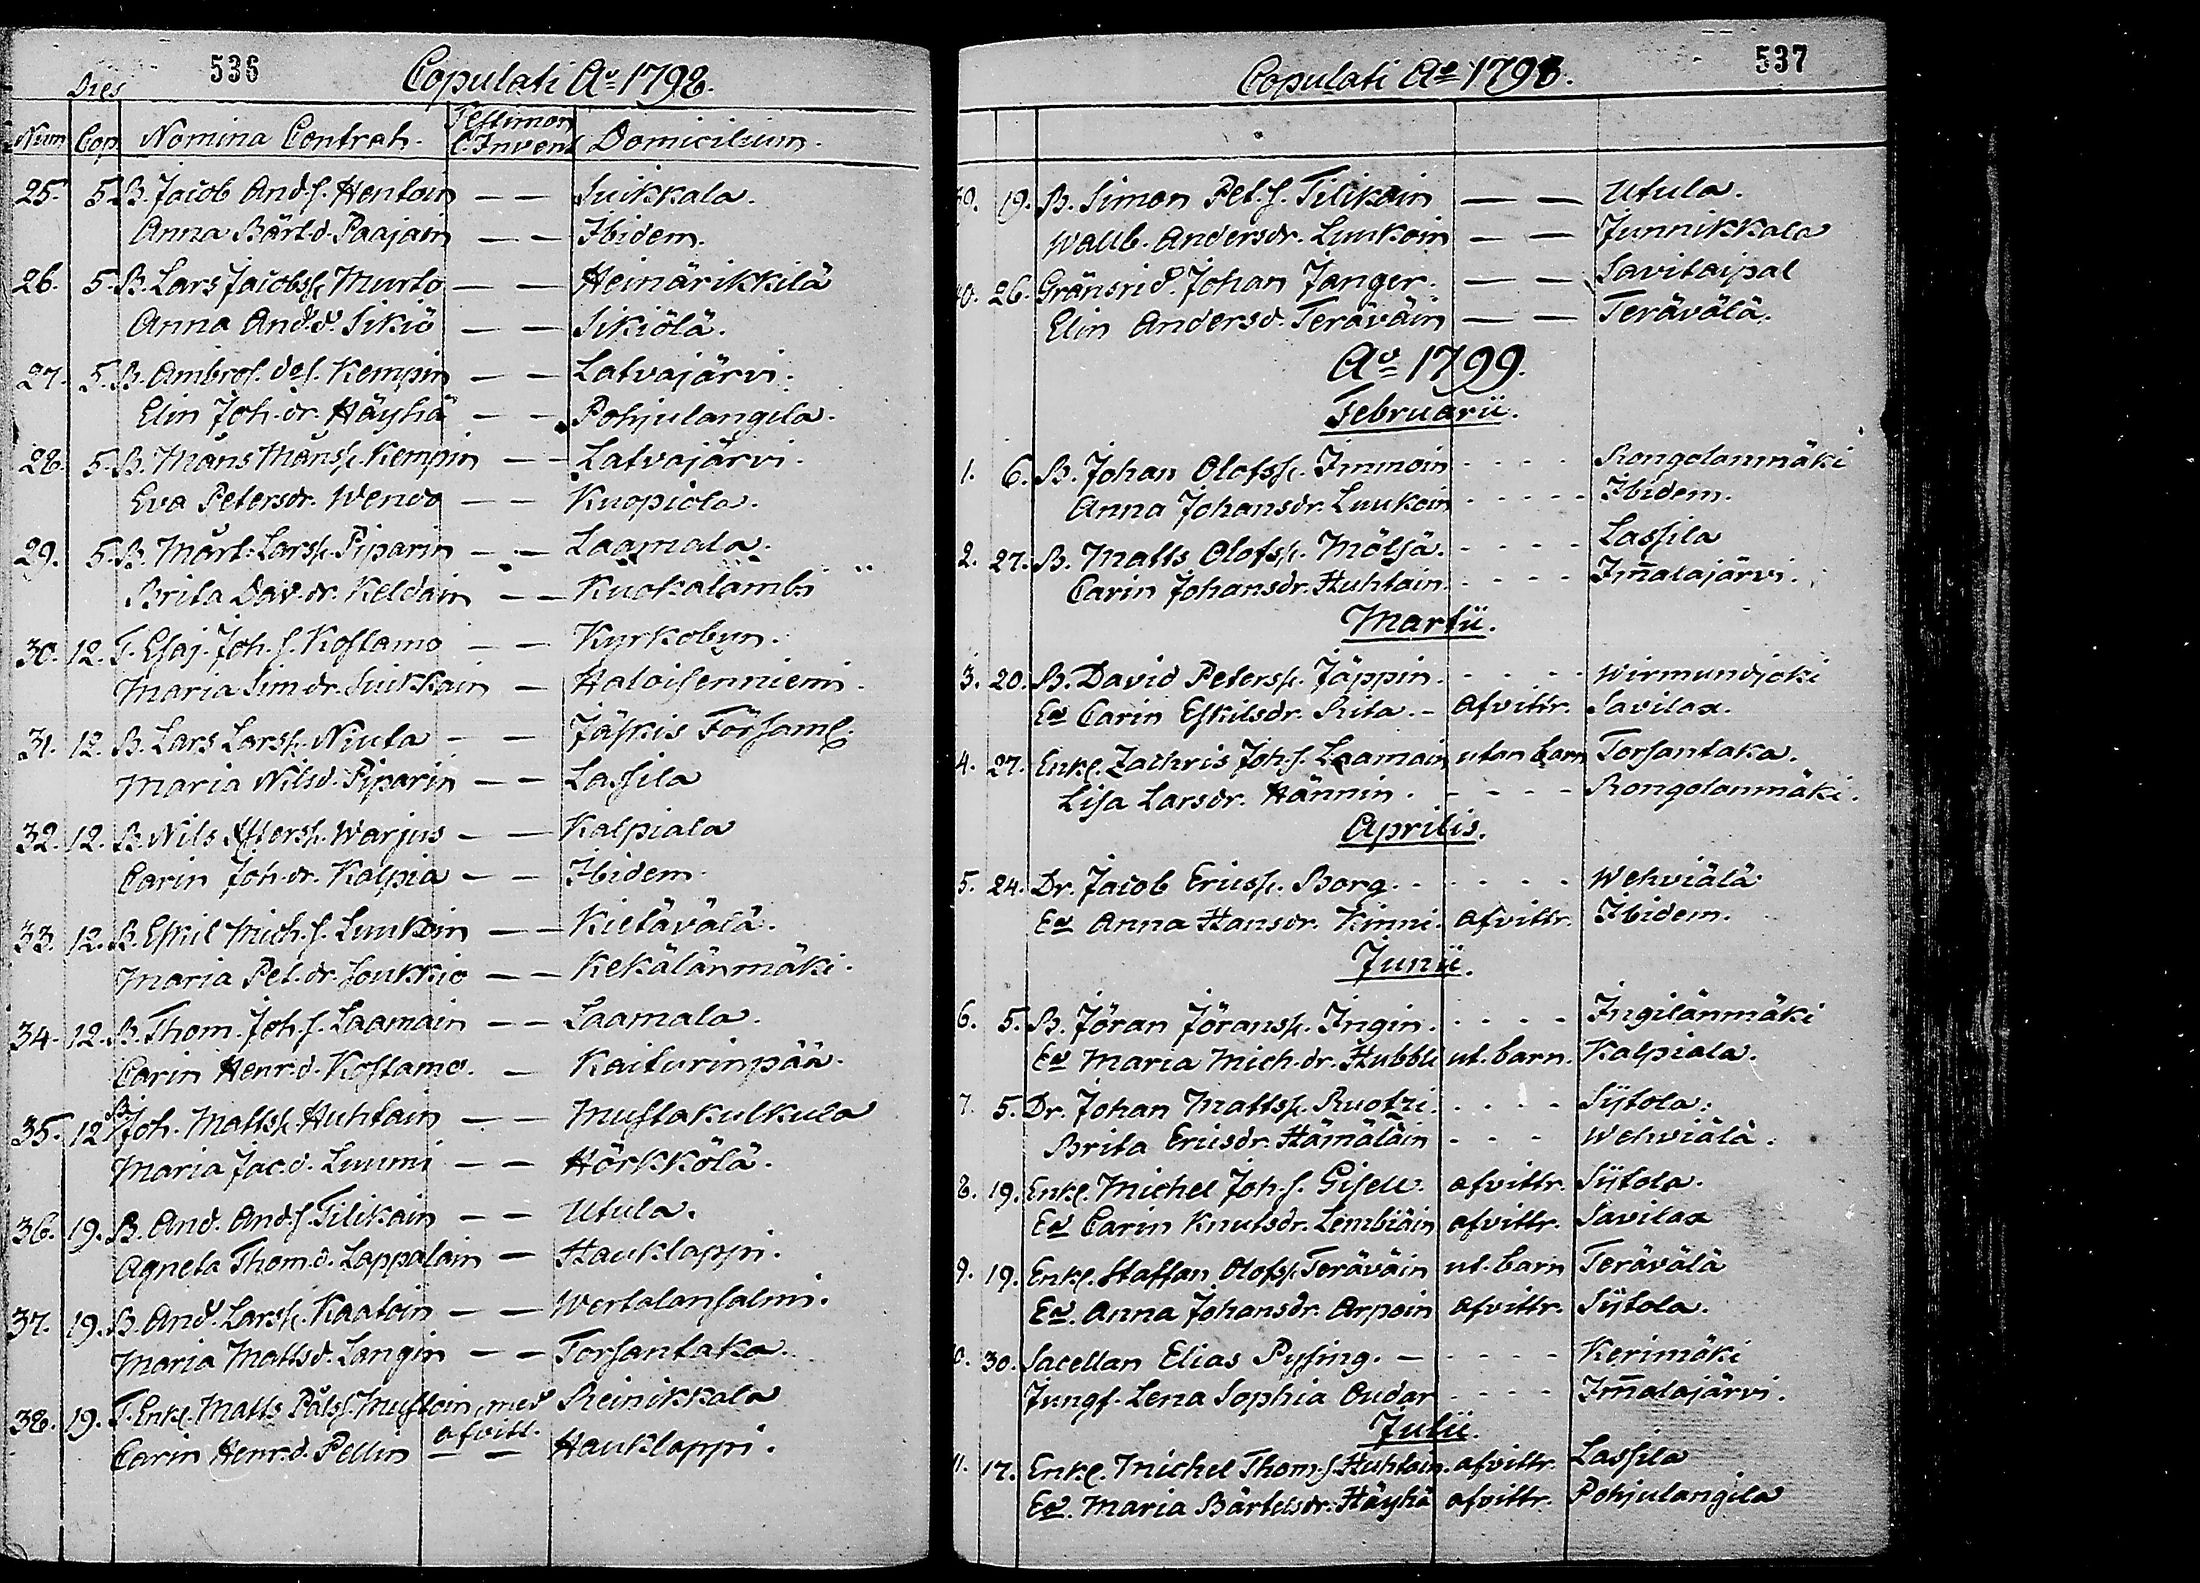 536
Copulati Aº 1798.
Dies
Num Cop. Nomina Contrah. Testimon C. Invent Domicilium.
25. 5. B. Jacob And.s. Hentoin — — Suikkala.
Anna Bärt.d. Paajain — — Ibidem.
26. 5. B. Lars Jacobss. Murto — — Heinärikkilä
Anna And.d. Sikiö — — Sikiölä.
27. 5. B. Ambros. s. Kempin — — Latvajärvi.
Elin Joh.dr. Häyhä — — Pohjulangila.
28. 5. B. Måns Månss. Kempin — — Latvajärvi.
Eva Petersdr. Wendo — — Kuopiola.
29. 5. B. Mårt. Larss. Piparin — — Laamala.
Brita Dav.dr. Keldain — — Kuokalambi
30. 12. T. Esaj. Joh.s. Kostamo — — Kyrkobyn.
Maria Sim.dr. Suikkain — Haloisenniemi.
31. 12. B. Lars Larss. Niuta — — Jäskis Församl.
Maria Nilsd. Piparin — — Lassila
32. 12. B. Nils Warjus — — Kalpiala
Carin Joh.dr. Kalpia — — Ibidem.
33. 12. B. Eskil Mich.s. Luukoin — — Kietävälä.
Maria Pet.dr. Soukkio — — Kekälänmäki.
34. 12. B. Thom. Joh.s. Laamain — — Laamala.
Carin Henr.d. Kostamo. — Kaiturinpää.
35. 12. B. Joh. Mattss. Huhtain — — Mustakulkula
Maria Jac.d. Luumi — — Hörkkölä.
36. 19. B. And. And.s. Tilikain — — Utula.
Agneta Thom.d. Lappalain — Hauklappi.
37. 19. B. And. Larss. Kaatoin — — Wertalansalmi.
Maria Mattsd. Langin — — Torsantaka.
38. 19. T. Enkl. Matts Pålss. Mustoin med afvitt. Reinikkala
Carin Henr.d. Pellin — — Hauklappi.
537
Copulati Aº 1798.
39. 19. B. Simon Pet.s. Tilikain — — Utula.
Wallb. Andersdr. Luukoin — — Junnikkala
40. 26. Gränsrid. Johan Janger. — — Savitaipal
Elin Andersd. Teräväin — — Terävälä.
Aº 1799.
Februarii.
1. 6. B. Johan Olofss. Immoin - - - - Rongolanmäki
Anna Johansdr. Luukoin - - - - Ibidem.
2. 27. B. Matts Olofss. Mölsä. - - - - Lassila
Carin Johansdr. Huhtain - - - - Im̄alajärvi.
Martii.
3. 20. B. David Peterss. Jäppin - - - - Wirmundjoki
Ea Carin Eskilsdr. Rita. - afvittr. Savilax.
4. 27. Enkl. Zachris Joh.s. Laamain utan barn Torsantaka.
Lisa Larsdr. Hännin. - - - - Rongolanmäki.
Aprilis.
5. 24. Dr. Jacob Ericss. Borg. - - - - Wehviälä
Ea Anna Hansdr. Kinni. afvittr. Ibidem.
Junii.
6. 5. B. Jöran Jöranss. Ingin. - - - - Ingilänmäki
Ea Maria Mich.dr. Hubbli ut. barn. Kalpiala.
7. 5. Dr. Johan Mattss. Ruotzi. - - - - Sijtola.
Brita Ericsdr. Hämäläin - - - Wehviälä.
8. 19. Enkl. Michel Joh.s. Gisell. afvittr. Sijtola.
Ea Carin Knutsdr. Lembiäin afvittr. Savilax
9. 19. Enkl. Staffan Olofss. Teräväin ut. barn Terävälä
Ea. Anna Johansdr. Arpain afvittr. Sijtola.
10. 30. Sacellan Elias Pysing. - - - - Kerimäki
Jungf. Lena Sophia Oudar - - - - Im̄alajärvi.
Julii.
11. 17. Enkl. Michel Thom.s. Huhtain. afvittr. Lassila
Ea. Maria Bärtelsdr. Häyhä afvittr. Pohjulangila